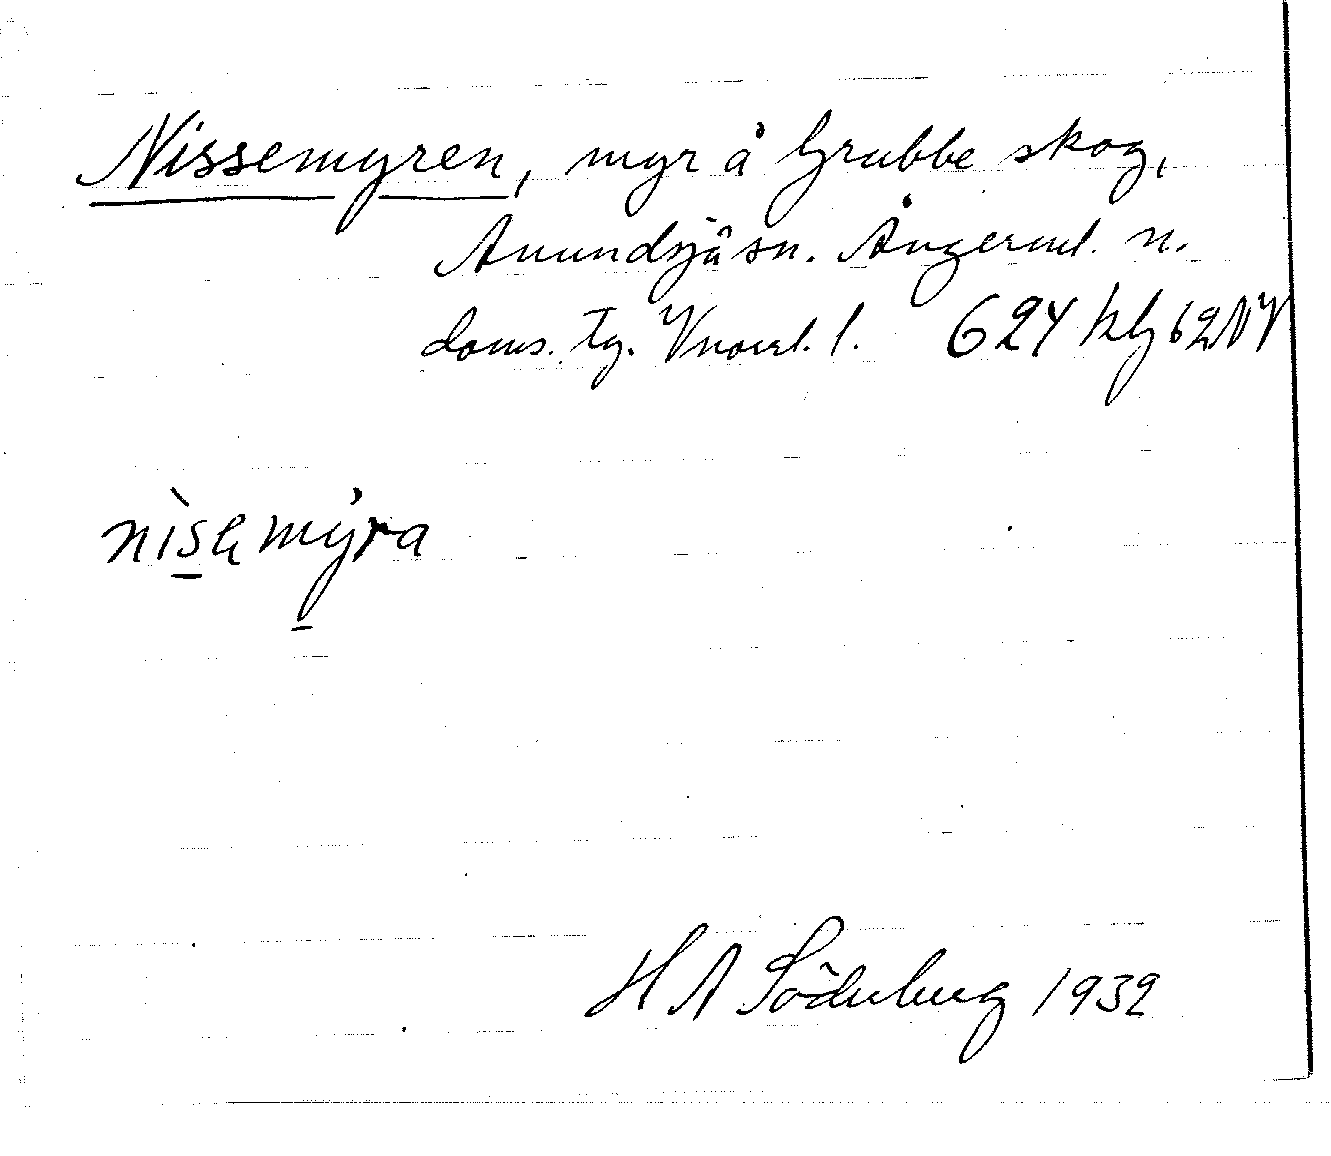 Nissemyren, myr å Grubbe skog,
Anundsjö sn. Ångerml. n.
doms. tg. Vnorrl. l. 624 Klg 62 NV
nìsɐmýra
H A Söderberg 1932